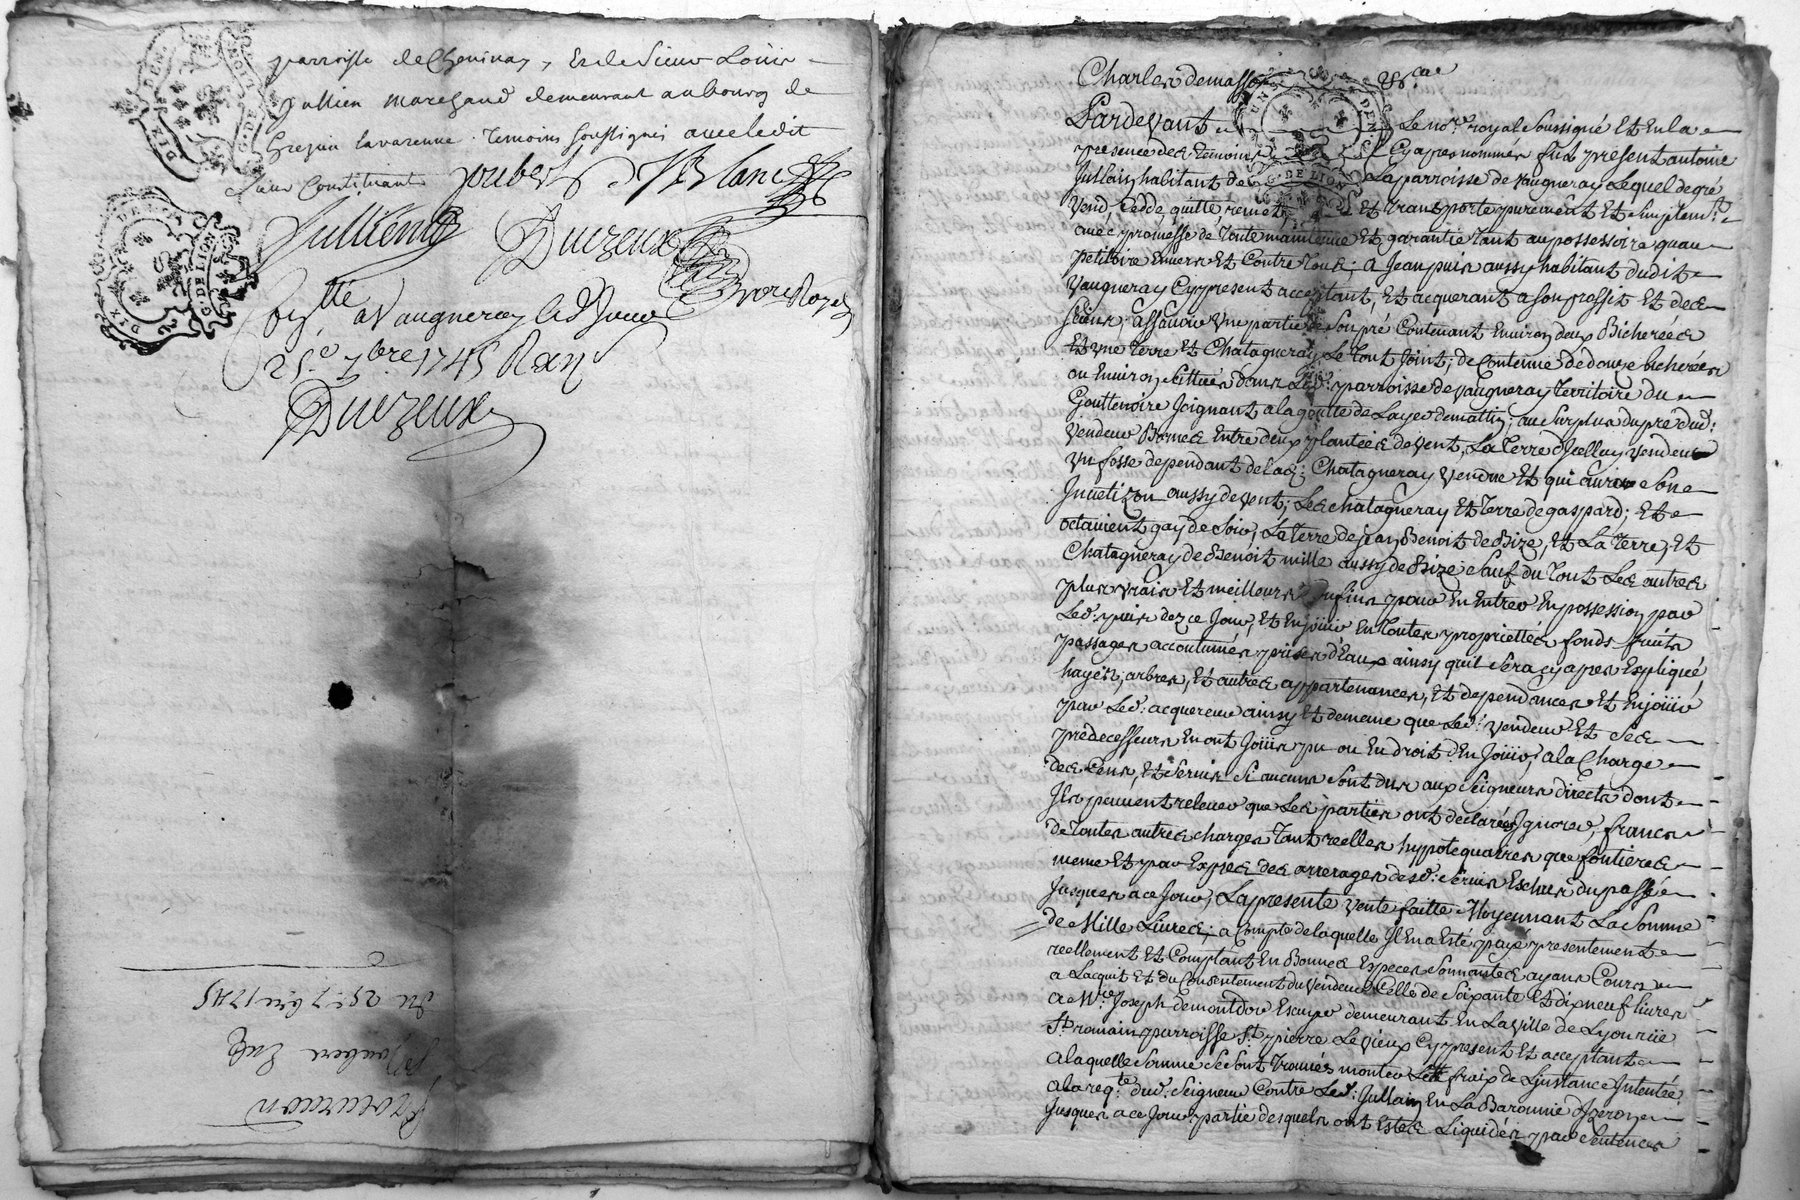 parroisse de Chevinay, Et de Sieur Loüis
Jullien marchand demeurant au bourg de
Grezieu lavarenne. Temoins soussignés avec ledit
sieur Constituant
joubert
Jullien
Duczeux
Notre Royal
DIX DEN
G. DE LION
con.llé a Vaugneray le d. jour
25.e 7bre 1745 Reçu
Duczeux
du 25e 7bre 1745
Joubert
procuration
Charles demasso
Pardevant Le no.re royal Soussigné Et En la
presence des temoins Cyapres nommés fut present antoine
Jullain habitant de La parroisse de Vaugneray Lequel de gré
Vend, Cedde, quitte remet Et transporte purement Et Simplem.t
avec promesse de toute maintenue Et garantie tant au possessoire quau
petitoire Envers Et Contre tous; a Jean puis aussy habitant dudit
Vaugneray Cypresent acceptant, Et acquerant a son proffit Et des
Siens, assavoir Vne partie de Son pré Contenant Environ deux Bicherées
Et vne terre Et Chatagneray Le tout Joint, de Contenue de douze bicherées
ou Environ Scittués dans Led. parroisse de Vaugneray territoire du
Gouttenoire Joignant a la goutte de Layeo de matin, au Surplus du pré dud:
Vendeur Bornes Entre deux plantées de vent, La terre d'Icelluy vendeur
Vn fosse dependant de lad: Chatagneray Vendue Et qui aura Son
Jnvetizon aussy de vent; Les chatagneray Et terre de gaspard; Et
octavient gay de Soir, La terre de jean Benoit de Bize, Et La terre, Et
Chatagneray de Benoit mille aussy de Bize Sauf du tout Les autres
plus vrais Et meilleurs Confins pour En Entrer En possession par
Led. puis dez ce Jour, Et En joüir En toutes proprietés fonds fruits
passages accoutumés prises d'Eaux ainsy quil Sera cyapres Expliqué
hayes, arbres, Et autres appartenances, Et dependances Et En joüir
par Led. acquereur ainsy Et de meme que Led. Vendeur Et Ses
predecesseurs En ont Joüis pu ou En droit d'En Joüir, a la Charge
des Cens, Et Servis Si aucuns Sont dus aux Seigneurs directs dont
Jls peuvent relever que Les parties ont declarés Jgnorer, francs
de toutes autres charges tant reelles hypotequaires que fontieres
meme Et par Exprès des arrerages desd: Servis Eschus du passé
Jusques a ce Jour, La presente Vente faitte Moyennant La Somme
de Mille Livres; a Compte de laquelle Jl En a Esté payé presentement
reellement Et Comptant En Bonnes Especes Sonnantes ayans Cours
a Lacquit Et du Consentement du Vendeur Celle de Soixante Et dix neuf livres
a M.re Joseph demontdor Escuyer demeurant En La Ville de Lyon rüe
S.t romain parroisse S.t pierre Le vieux Cypresent Et acceptant
a laquelle Somme Se Sont trouvés monter Les fraix de Linstance Jntentée
a la req.te dud. Seigneur Contre Led. Jullain En La Baronnie d'Jzeron
Jusques a ce Jour partie desquels ont Estés Liquidés par Sentences